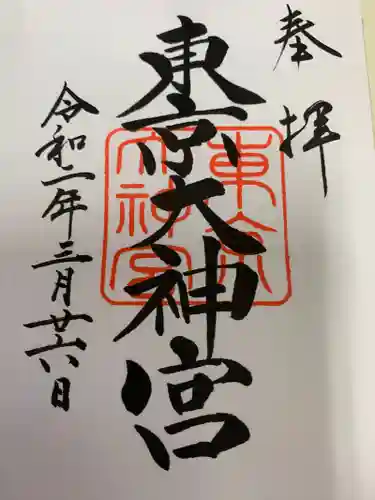 奉拝
東京大神宮
東京大神宮
令和二年三月廿六日